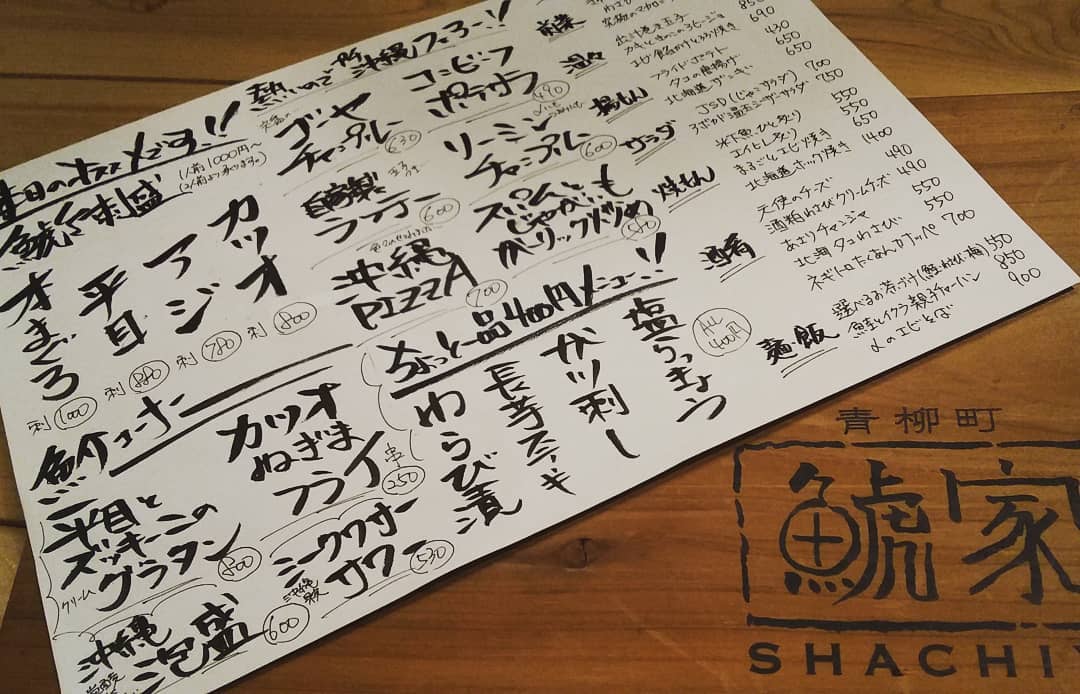 本日のオススメです!!
鯱家刺盛
1人前1000円〜
(2人前より承ります。)
カツオ
刺 800
アジ
刺 780
平目
刺 880
オまぐろ
刺 1000
熱いので 沖縄フェアー!!
ゴーヤ
チャンプルー
630
コンビーフ
ポテサラ
490
自家製
ラフテー
600
ソーミン
チャンプルー
600
沖縄
PIZZA
700
スパムと
じゃがいも
ガーリック炒め
580
魚介コーナー
平目と
ズッキーニの
クリーム
グラタン
800
カツオ
ねぎま
フライ
串
250
沖縄
泡盛
600
シークワサー
サワー
530
ちょっと一品400円メニュー!!
ALL
400円
塩らっきょう
ガツ刺し
長芋ステーキ
わらび漬
前菜
温々
揚もん
サラダ
焼もん
酒肴
麺・飯
850
出汁巻き玉子 690
カキときのこのアヒージョ
430
650
フライドポテト
タコの唐揚げ 650
北海道ザンギ
700
JSD(じゃこサラダ) 750
アボカド温玉シーザーサラダ
550
エイヒレ炙り 550
まるごとエビ焼き 650
北海道ホッケ焼き 1400
天使のチーズ 490
酒粕わさびクリームチーズ 490
あさりチャンジャ 550
北海タコわさび 550
ネギトロたくあんカナッペ 700
選べるお茶づけ(鮭・わさび・梅) 550
鮭とイクラ親子チャーハン 850
〆のエビそば 900
青柳町
鯱家
SHACHIY